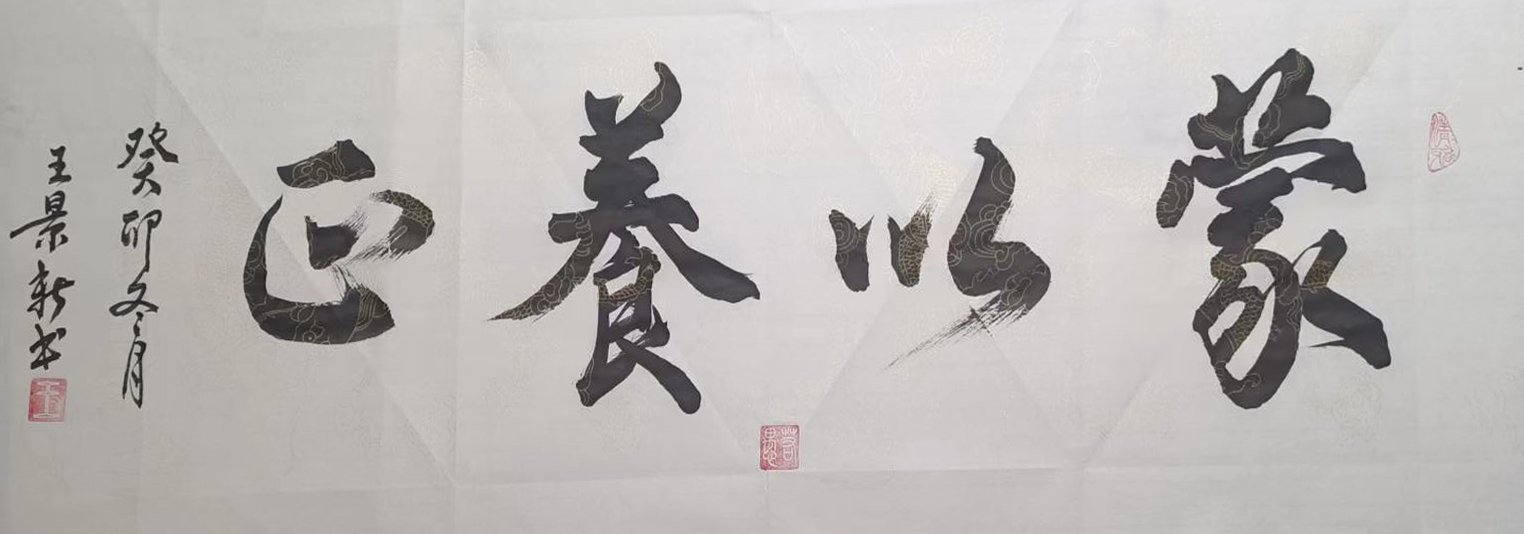 蒙以養正
癸卯冬月
王景新书